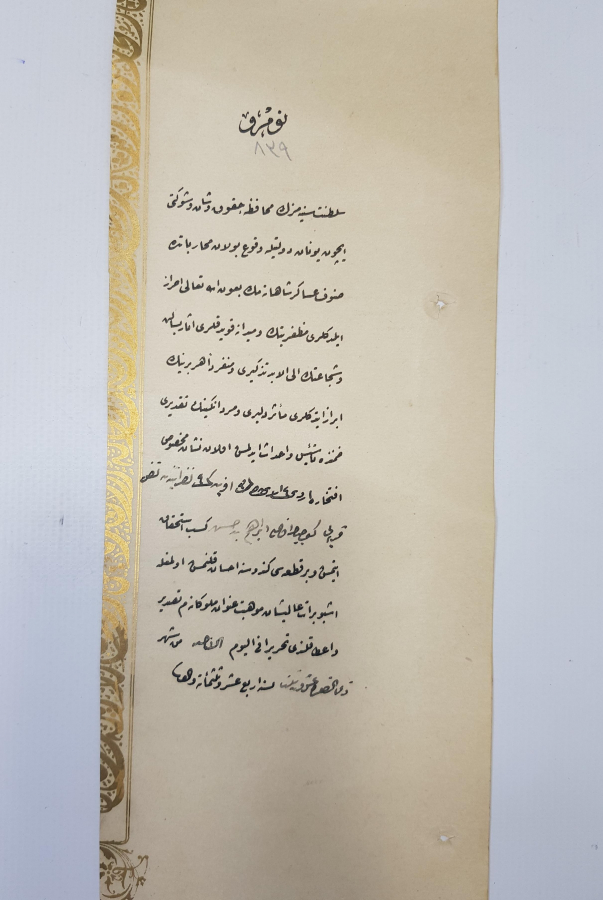 نومرو
٨٣٩
سلطنت سنیه مزك محافظهٔ حقوق وشان وشوكتی
ایچون یونان دولتیله وقوع بولان محارباتده
صنوف عساكر شاهانه مك بعون الله تعالی احراز
ایلدكلری مظفریتك ومیدانه قویدقلری آثار بسالت
وشجاعتك الی الابد تذكیری ومنفرداً هر برینك
ابراز ایتدكلری مآثر دلیری ومردانگینك تقدیری
ضمننده تأسیس واحداث ایدلمش اولان نشان مخصوص
افتخاره
ابراهیم بن حسن كسب استحقاق
ایتمش وبر قطعه سی كندوسنه احسان قلنمش اولمغله
اشبو برات عالیشان موهبت عنوان ملوكانه م تصدیر
واعطا قلندی تحریراً فی الیوم من شهر
سنه اربع عشر وثلثمائة والف